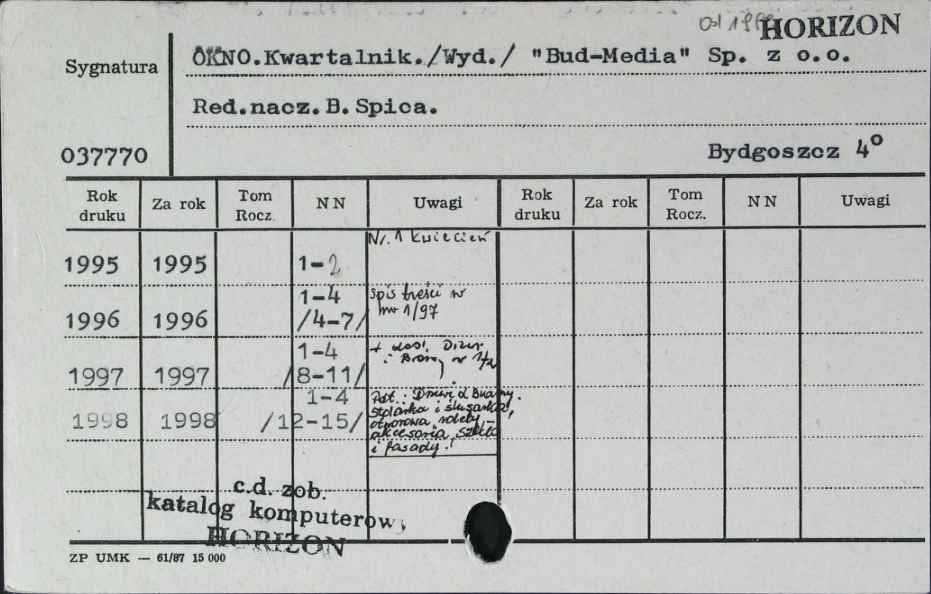 od 1999 HORIZON
Sygnatura
OKNO.Kwartalnik./Wyd./ "Bud-Media" Sp. z o.o.
Red.nacz.B.Spica.
037770
Bydgoszcz 4°
Rok druku Za rok Tom Rocz. NN Uwagi Rok druku Za rok Tom Rocz. NN Uwagi
Nr. 1 kwiecień
1995 1995 1-2
1-4 spis treści w
1996 1996 /4-7/ nr 1/97
1-4 + dod.
1997 1997 /8-11/ : Bramy nr 1/2
1-4 : Drzwi & Bramy.
1998 1998 /12-15/ stolarka i ślusarka
otworowa, rolety –
akcesoria, szkło
i fasady!
c.d. zob.
katalog komputerow,
HORIZON
ZP UMK — 61/87 15 000